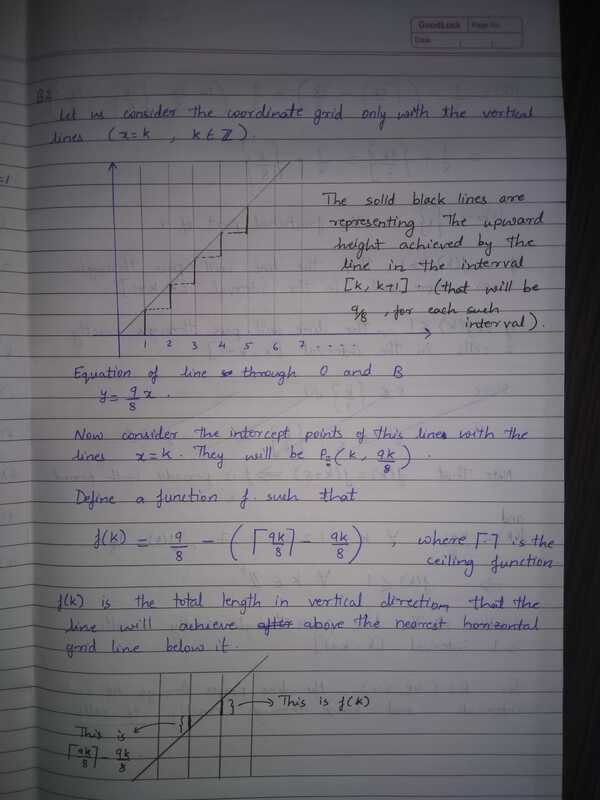 GoodLuck Page No.
Date
B2
Let us consider the coordinate grid only with the vertical
lines (x=k , k∈ℤ).
The solid black lines are
representing The upward
height achieved by the
line in the interval
[k, k+1]. (that will be
9/8, for each such
interval).
1 2 3 4 5 6 7 . . . .
Equation of line through O and B
y = 9/8 x .
Now consider the intercept points of this lines with the
lines x=k. They will be P≡(k, 9k/8) .
Define a function f such that
f(k) = 9/8 - (⌈9k/8⌉ - 9k/8) , where ⌈.⌉ is the
ceiling function
f(k) is the total length in vertical direction that the
line will achieve after above the nearest horizontal
grid line below it.
This is f(k)
This is
⌈9k/8⌉ - 9k/8